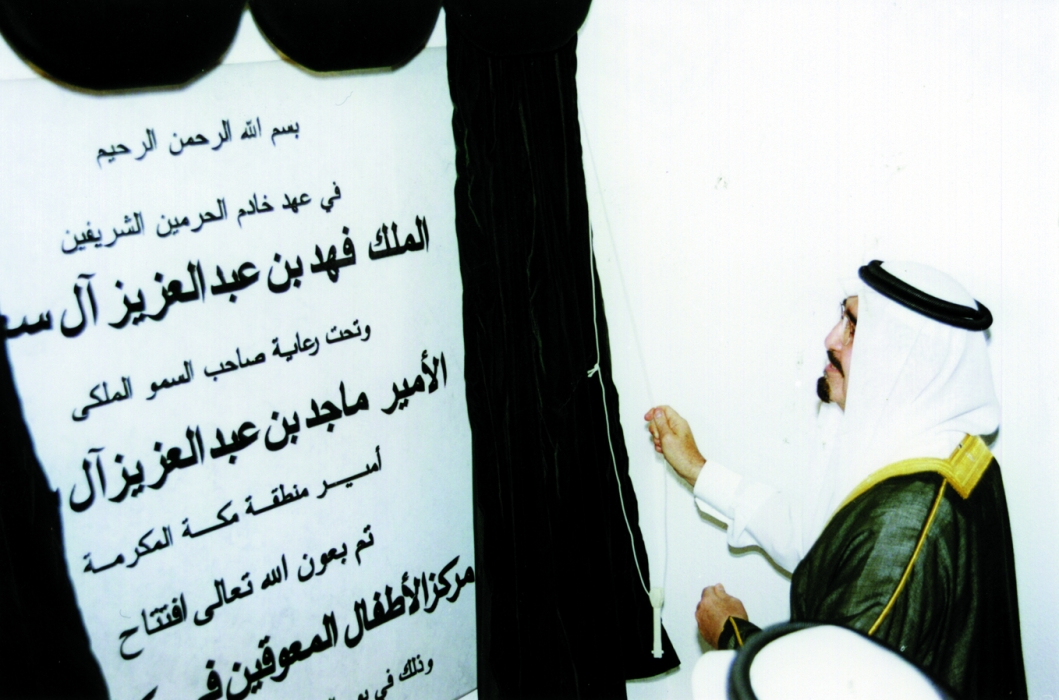 بسم الله الرحمن الرحيم
في عهد خادم الحرمين الشريفين
الملك فهد بن عبدالعزيز آل سعـ
وتحت رعاية صاحب السمو الملكى
الأمير ماجد بن عبدالعزيز آل
أمير منطقة مكة المكرمة
تم بعون الله تعالى افتتاح
مركز الأطفال المعوقين في
وذلك في